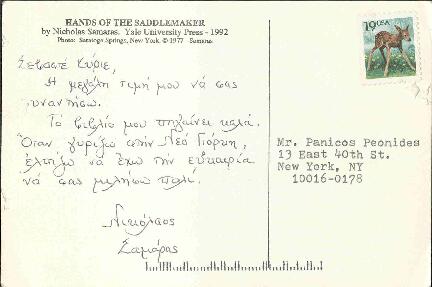 HANDS OF THE SADDLEMAKER
by Nicholas Samaras. Yale University Press - 1992
Photo: Saratoga Springs, New York. © 1977 - Samaras.
19 USA
Σεβαστέ Κύριε,
Ἡ μεγάλη τιμή μου νά σας
συναντήσω.
Τό βιβλίο μου πηγαίνει καλά.
Ὅταν γυρίζω στήν Νέα Γιόρκη,
ἐλπίζω νά ἔχω τήν εὐκαιρία
νά σας μιλήσω πολύ.
Νικόλαος
Σαμάρας
Mr. Panicos Peonides
13 East 40th St.
New York, NY
10016-0178